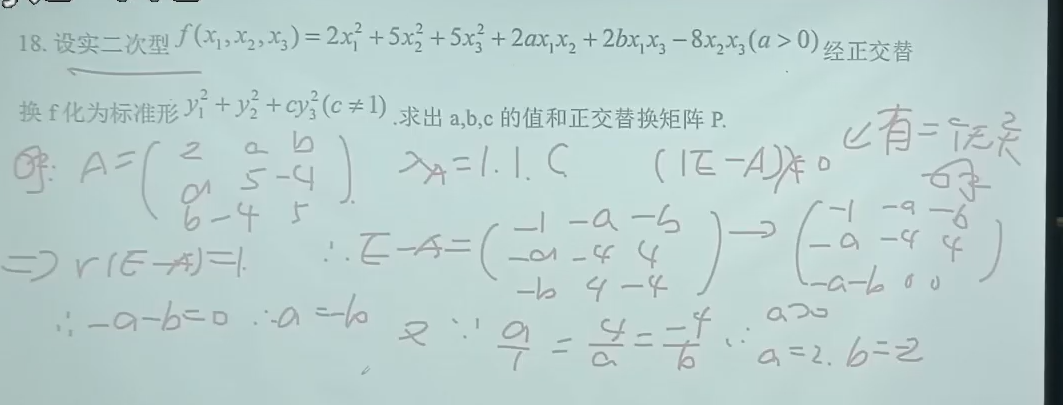 18. 设实二次型 f(x₁,x₂,x₃)=2x₁²+5x₂²+5x₃²+2ax₁x₂+2bx₁x₃−8x₂x₃(a>0) 经正交替
换 f 化为标准形 y₁²+y₂²+cy₃²(c≠1) .求出 a,b,c 的值和正交替换矩阵 P.
解: A=(2 a b
a 5 -4
b -4 5). λA=1.1.C (1E-A)X=0 必有=个无关
解
⇒ r(E-A)=1. ∴ E-A=(-1 -a -b
-a -4 4
-b 4 -4) → (-1 -a -b
-a -4 4
-a-b 0 0)
∴ -a-b=0 ∴ a=-b 又∵ a/1 = 4/a = -4/b ∵ a>0
a=2. b=-2